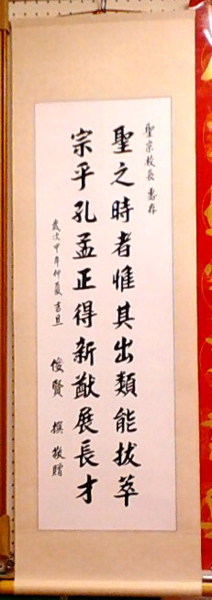 聖宗校長 惠存
聖之時者惟其出類能拔萃
宗乎孔孟正得新猷展長才
歲次甲午仲夏吉旦
俊賢 撰 敬贈